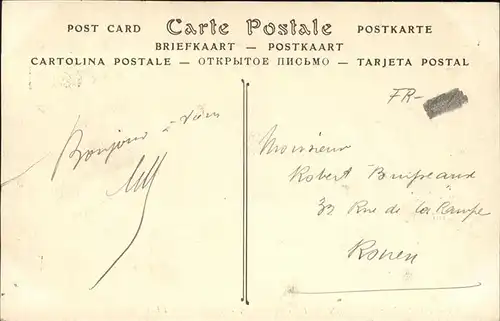 POST CARD Carte Postale POSTKARTE
BRIEFKAART — POSTKAART
CARTOLINA POSTALE — ОТКРЫТОЕ ПИСЬМО — TARJETA POSTAL
FR-
Bonjour à
Monsieur
Robert
32 Rue de la
Rouen